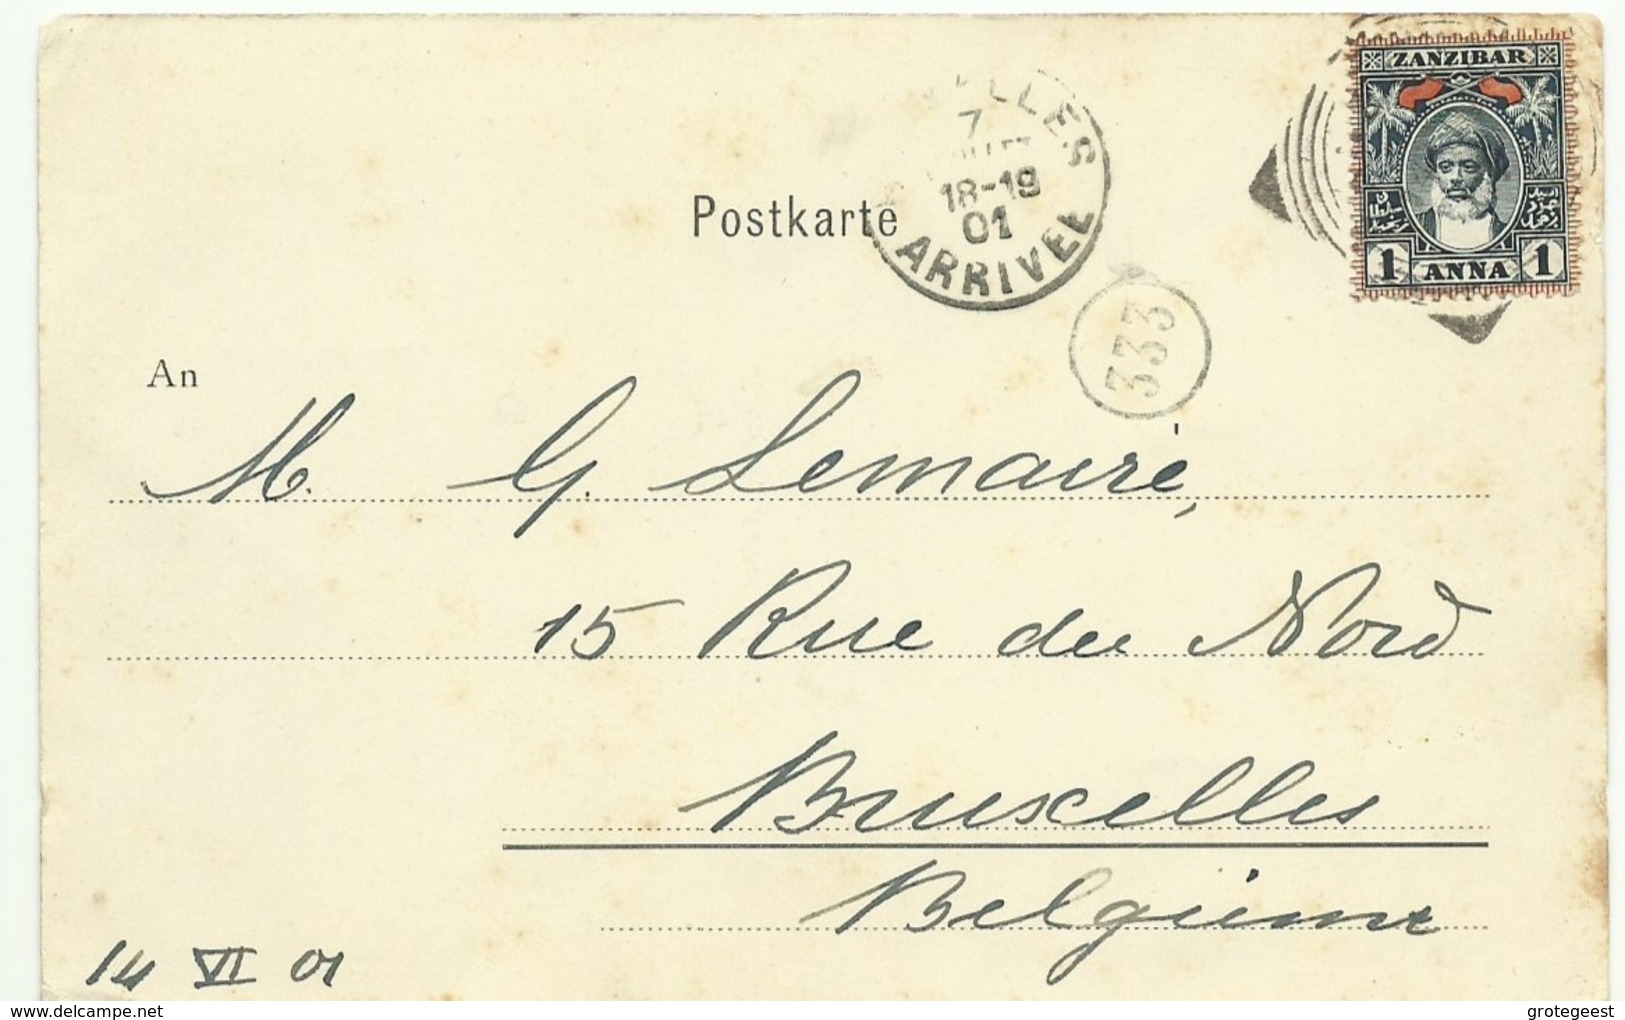 ZANZIBAR
1 ANNA 1
LLES
7
18-19
01
ARRIVEE
Postkarte
333
An
M. G. Lemaire,
15 Rue du Nord
Bruxelles
Belgiume
14 VI 01
www.delcampe.net
grotegeest